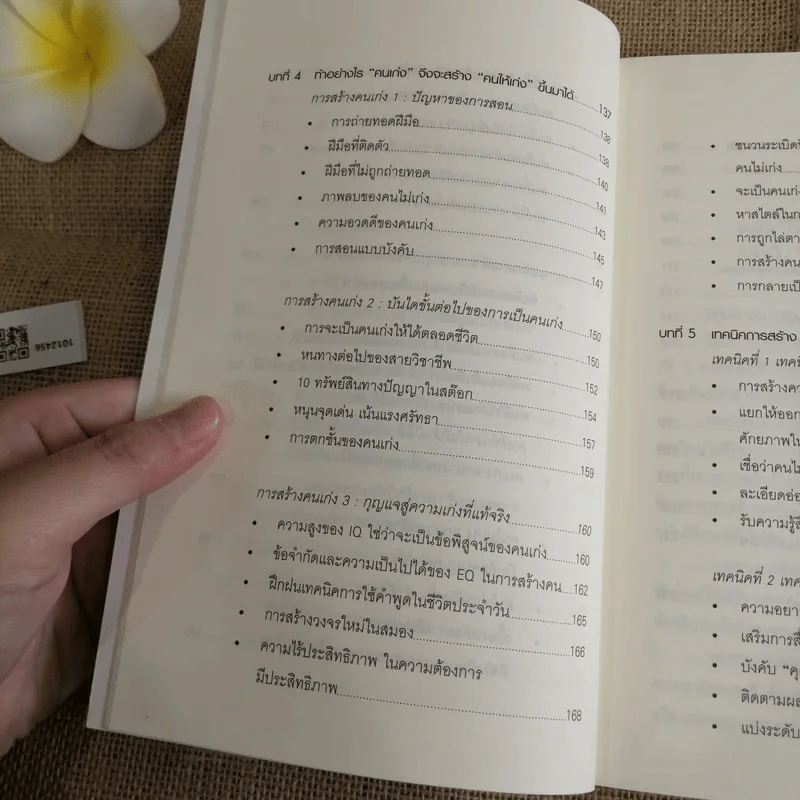 บทที่ 4 ทำอย่างไร “คนเก่ง” จึงจะสร้าง “คนให้เก่ง” ขึ้นมาได้ 137
การสร้างคนเก่ง 1 : ปัญหาของการสอน 138
• การถ่ายทอดฝีมือ 138
• ฝีมือที่ติดตัว 140
• ฝีมือที่ไม่ถูกถ่ายทอด 141
• ภาพลบของคนไม่เก่ง 143
• ความอวดดีของคนเก่ง 145
• การสอนแบบบังคับ 147
การสร้างคนเก่ง 2 : บันไดขั้นต่อไปของการเป็นคนเก่ง 150
• การจะเป็นคนเก่งให้ได้ตลอดชีวิต 150
• หนทางต่อไปของสายวิชาชีพ 152
• 10 ทรัพย์สินทางปัญญาในสต๊อก 154
• หนุนจุดเด่น เน้นแรงศรัทธา 157
• การตกชั้นของคนเก่ง 159
การสร้างคนเก่ง 3 : กุญแจสู่ความเก่งที่แท้จริง 160
• ความสูงของ IQ ใช่ว่าจะเป็นข้อพิสูจน์ของคนเก่ง 160
• ข้อจำกัดและความเป็นไปได้ของ EQ ในการสร้างคน 162
• ฝึกฝนเทคนิคการใช้คำพูดในชีวิตประจำวัน 165
• การสร้างวงจรใหม่ในสมอง 166
• ความไร้ประสิทธิภาพ ในความต้องการ
มีประสิทธิภาพ 168
1012456
• ชนวนระเบิด
คนไม่เก่ง
• จะเป็นคนเก่ง
• หาสไตล์ใน
• การถูกไล่ตา
• การสร้างคน
• การกลายเป็
บทที่ 5 เทคนิคการสร้าง
เทคนิคที่ 1 เทค
• การสร้างคว
• แยกให้ออก
ศักยภาพใน
• เชื่อว่าคนไม
• ละเอียดอ่อ
• รับความรู้สึ
เทคนิคที่ 2 เทค
• ความอยา
• เสริมการสื่
• บังคับ “คุ
• ติดตามผล
• แบ่งระดับ